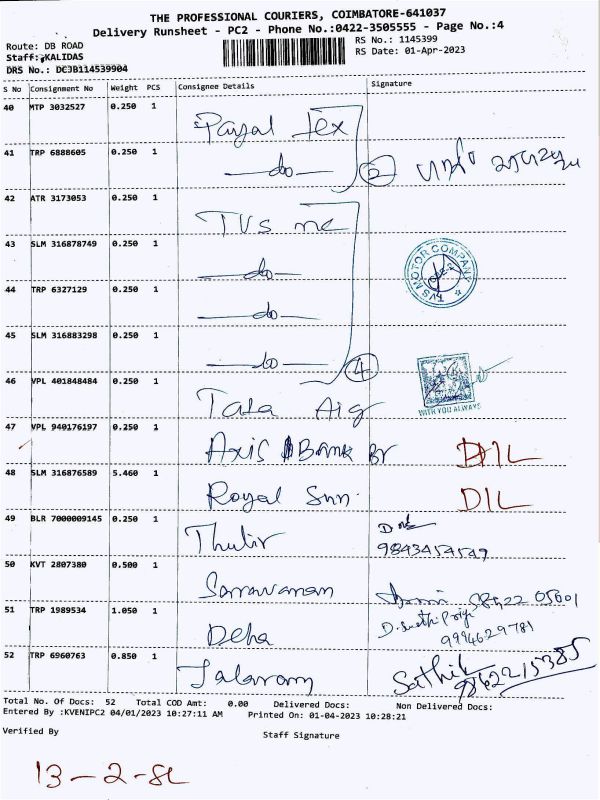 THE PROFESSIONAL COURIERS, COIMBATORE-641037
Delivery Runsheet - PC2 - Phone No.:0422-3505555 - Page No.:4
Route: DB ROAD
RS No.: 1145399
Staff: KALIDAS
RS Date: 01-Apr-2023
DRS No.: DCJB114539904
S No Consignment No Weight PCS Consignee Details Signature
40 MTP 3032527 0.250 1 Payal Tex
41 TRP 6888605 0.250 1 —do— 2
42 ATR 3173053 0.250 1 TVS mc
43 SLM 316878749 0.250 1 —do— TVS MOTOR COMPANY
44 TRP 6327129 0.250 1 —do—
45 SLM 316883298 0.250 1 —do— 4
46 VPL 401848484 0.250 1 Tata Aig WITH YOU ALWAYS
47 VPL 940176197 0.250 1 Axis Bank Br D/L
48 SLM 316876589 5.460 1 Royal Sun D/L
49 BLR 7000009145 0.250 1 Thulir 9843454549
50 KVT 2807380 0.500 1 Saravanan
51 TRP 1989534 1.050 1 9994629781
52 TRP 6960763 0.850 1 Jalaram Sathik
Total No. Of Docs: 52 Total COD Amt: 0.00 Delivered Docs: Non Delivered Docs:
Entered By :KVENIPC2 04/01/2023 10:27:11 AM Printed On: 01-04-2023 10:28:21
Verified By
Staff Signature
13-2-